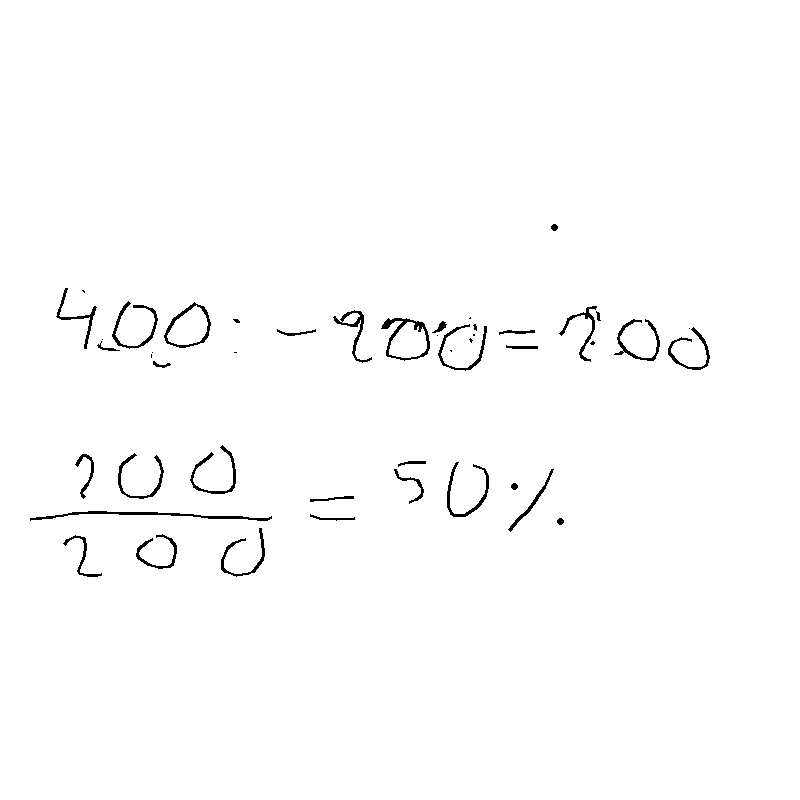 400 - 200 = 200
200
200 = 50%